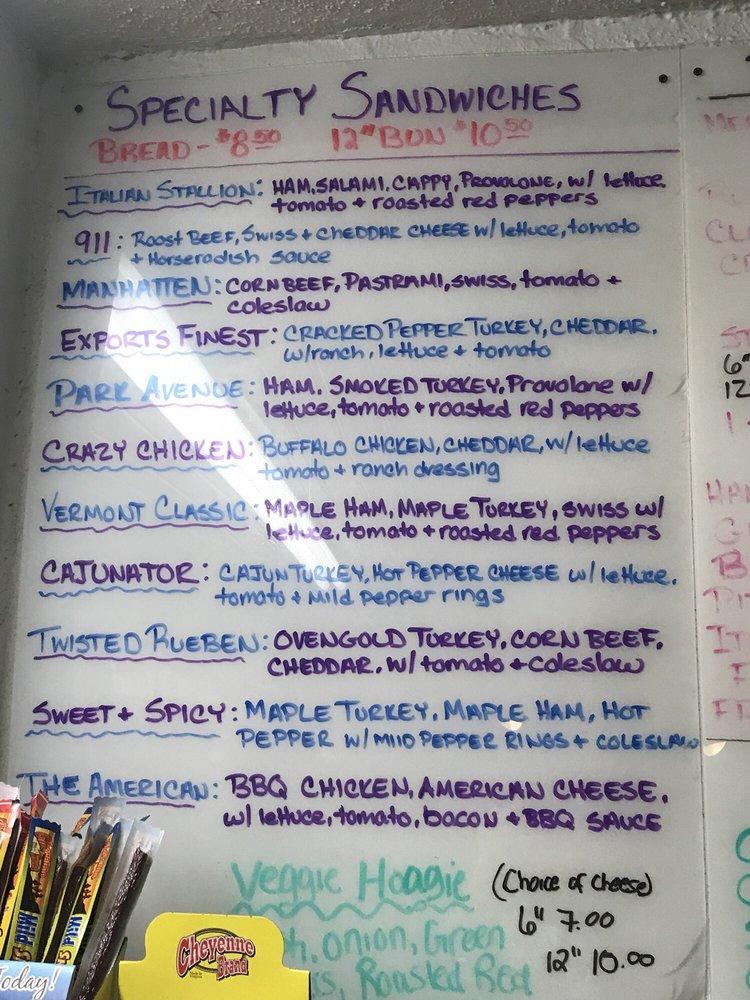 SPECIALTY SANDWICHES
BREAD - $8.50 12" BUN $10.50
ITALIAN STALLION: HAM, SALAMI, CAPPY, PROVOLONE, w/ lettuce,
tomato + roasted red peppers
911: ROAST BEEF, SWISS + CHEDDAR CHEESE w/ lettuce, tomato
+ Horseradish sauce
MANHATTEN: CORNBEEF, PASTRAMI, SWISS, tomato +
coleslaw
EXPORTS FINEST: CRACKED PEPPER TURKEY, CHEDDAR,
w/ranch, lettuce + tomato
PARK AVENUE: HAM, SMOKED TURKEY, Provolone w/
lettuce, tomato + roasted red peppers
CRAZY CHICKEN: BUFFALO CHICKEN, CHEDDAR, w/ lettuce
tomato + ranch dressing
VERMONT CLASSIC: MAPLE HAM, MAPLE TURKEY, SWISS w/
lettuce, tomato + roasted red peppers
CAJUNATOR: CAJUN TURKEY, HOT PEPPER CHEESE w/ lettuce,
tomato + Mild pepper rings
TWISTED RUEBEN: OVENGOLD TURKEY, CORN BEEF,
CHEDDAR, w/ tomato + coleslaw
SWEET + SPICY: MAPLE TURKEY, MAPLE HAM, HOT
PEPPER w/ MILD PEPPER RINGS + COLESLAW
THE AMERICAN: BBQ CHICKEN, AMERICAN CHEESE,
w/ lettuce, tomato, bacon + BBQ SAUCE
Veggie Hoagie (Choice of cheese)
6" 7.00
onion, Green
12" 10.00
Roasted Red
Cheyenne
Brand
Today!